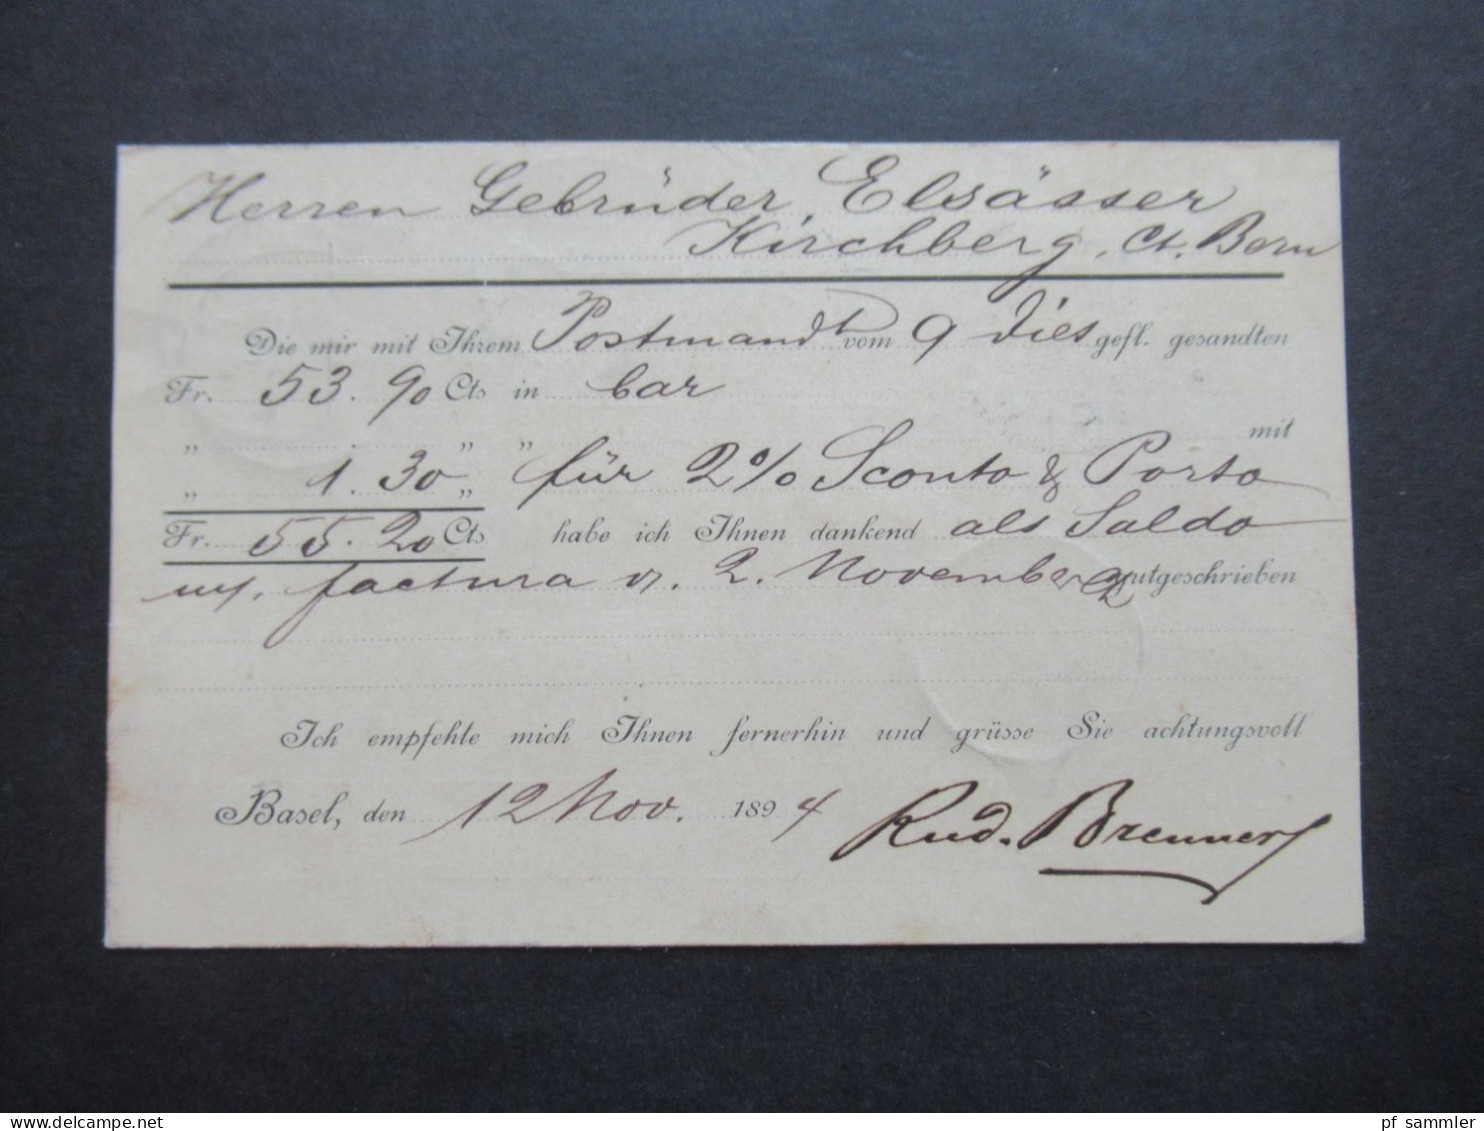 Herren Gebrüder Elsässer
Kirchberg, Ct. Bern
Die mir mit Ihrem Postmandt vom 9 dies gefl. gesandten
Fr. 53.90 Cts in bar
„ . „ „ mit
„ 1.30 „ für 2% Sconto & Porto
Fr. 55.20 Cts habe ich Ihnen dankend als Saldo
m/. factura v. 2. November gutgeschrieben
Ich empfehle mich Ihnen fernerhin und grüsse Sie achtungsvoll
Basel, den 12 Nov. 1894 Rud. Brenner
pf_sammler